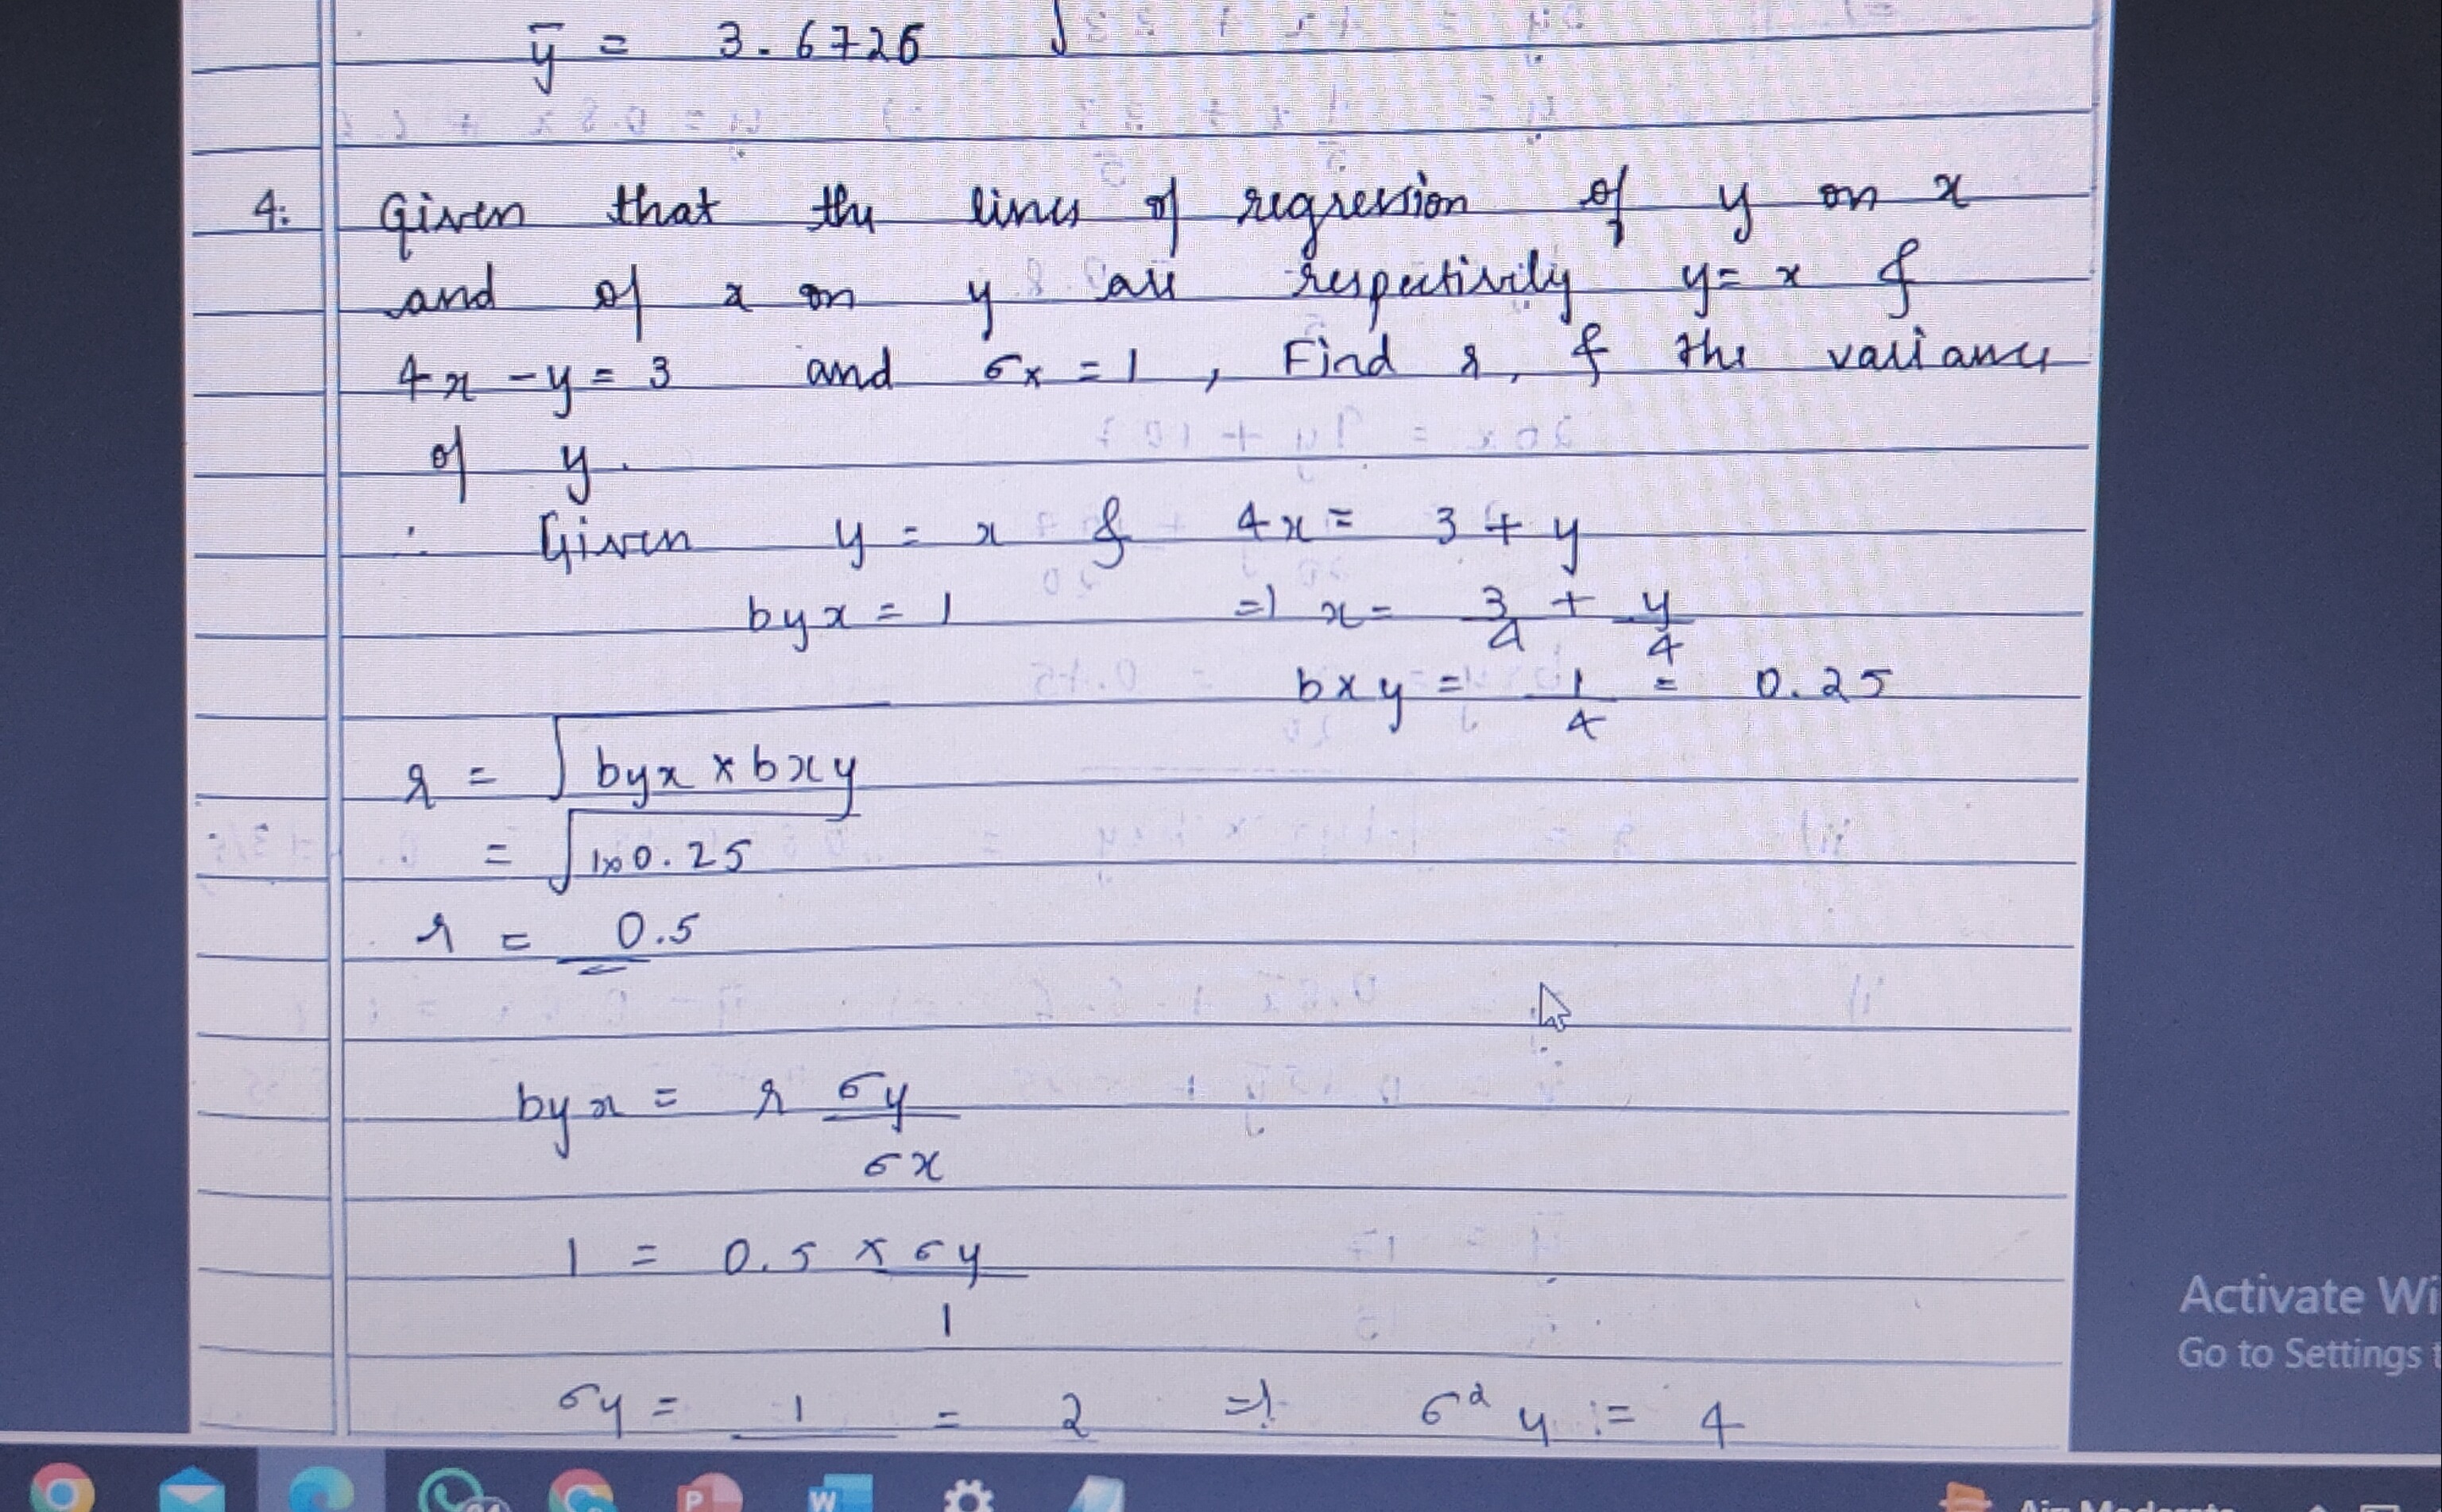 ȳ = 3.6726
4. Given that the lines of regression of y on x
and of x on y are respectively y = x &
4x - y = 3 and σx = 1, Find r, & the variance
of y.
∴ Given y = x & 4x = 3 + y
byx = 1 => x = 3/4 + y/4
bxy = 1/4 = 0.25
r = √byx × bxy
= √1×0.25
r = 0.5
byx = r σy/σx
1 = 0.5 × σy/1
σy = 1 = 2 => σ²y = 4
Activate Wi
Go to Settings t